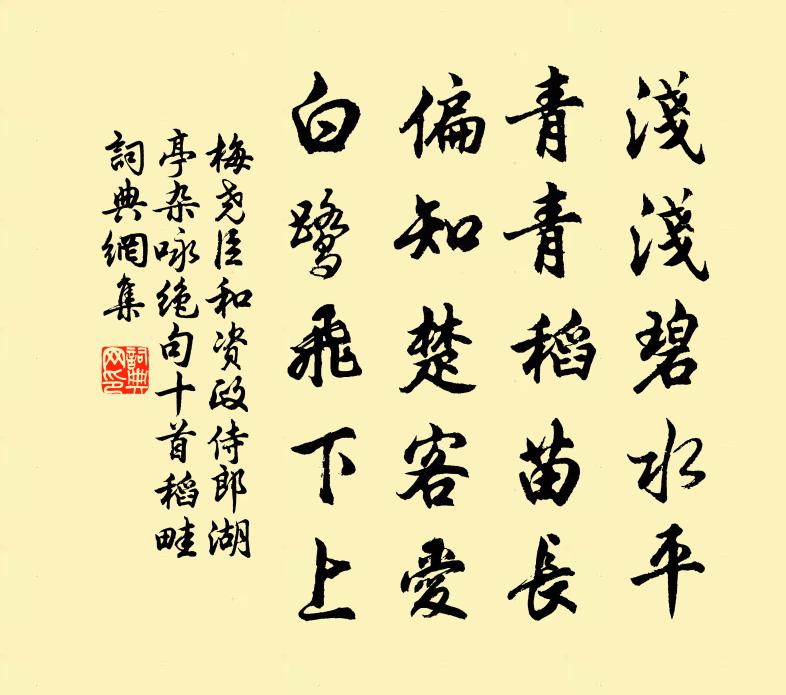 淺淺碧水平
青青稻苗長
偏知楚客愛
白鷺飛下上
梅尧臣和资政侍郎湖
亭杂咏绝句十首稻畦
詞典網集
詞典
网印